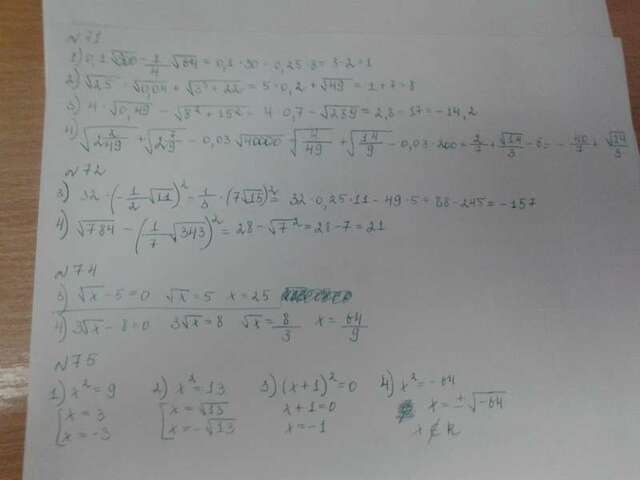 №71
1) 0,1√900 - 1/4 √64 = 0,1·30 - 0,25·8 = 3-2=1
2) √25 · √0,04 + √(3³+22) = 5·0,2 + √49 = 1+7=8
3) 4·√0,49 - √(8²+15²) = 4·0,7 - √289 = 2,8-17 = -14,2
4) √(2/49) + √(2/9) - 0,03 √40000 √(4/49) + √(14/9) - 0,03·200 = 2/7 + √14/3 - 6 = - 40/7 + √14/3
№72
3) 32·(-1/2 √11)² - 1/3·(7√15)² = 32·0,25·11 - 49·5 = 88-245 = -157
4) √784 - (1/7 √343)² = 28 - √7² = 28-7=21
№74
3) √x - 5=0 √x = 5 x = 25
4) 3√x - 8=0 3√x = 8 √x = 8/3 x = 64/9
№75
1) x² = 9 2) x² = 13 3) (x+1)² = 0 4) x² = -64
[x = 3 [x = √13 x+1=0 x = ±√-64
x = -3 x = -√13 x = -1 x ∉ R